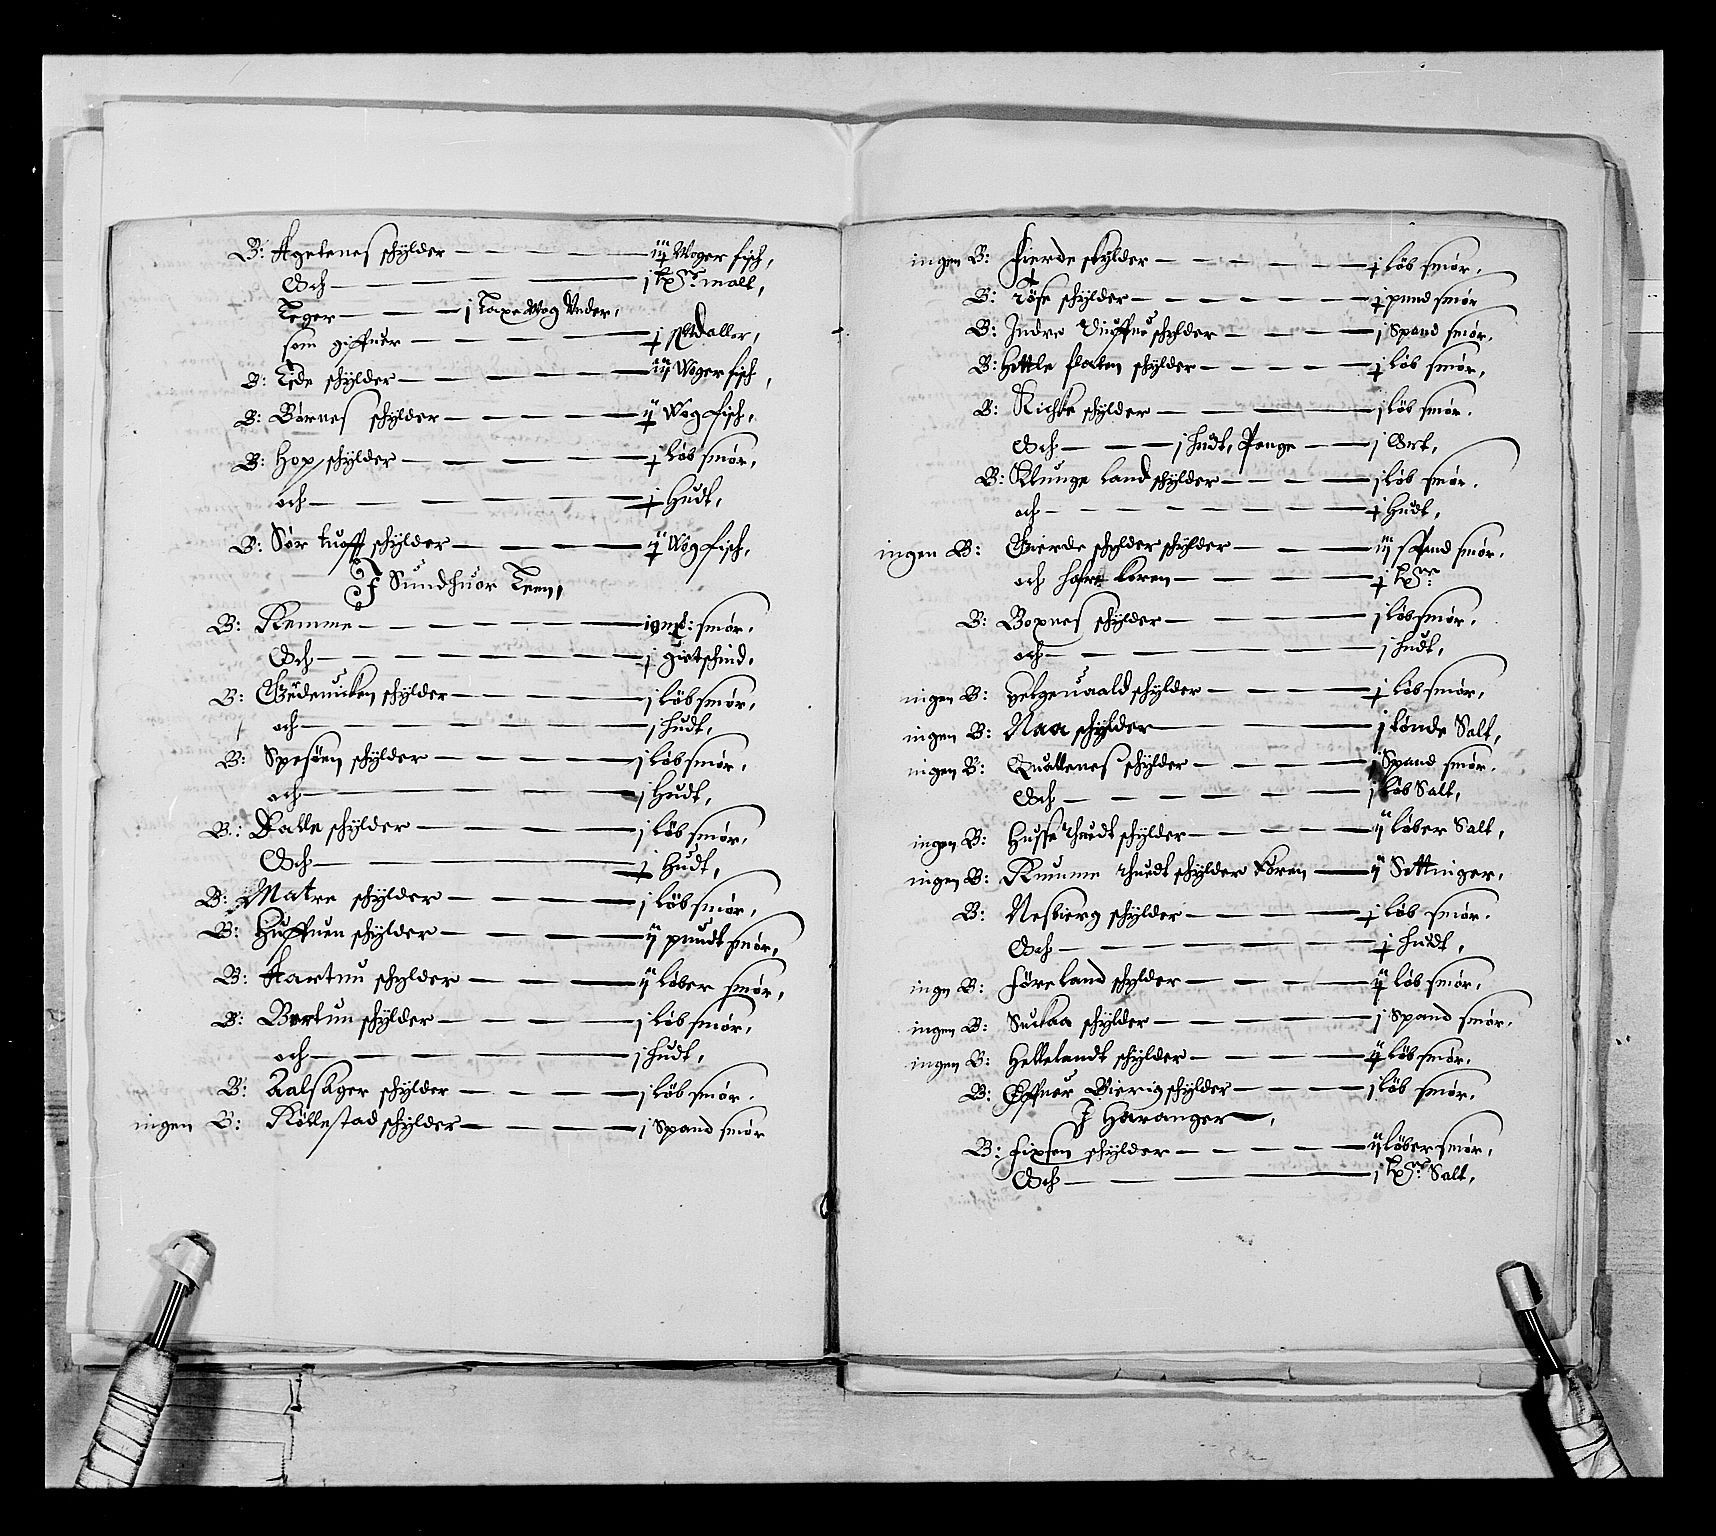 B: Agetenes schÿlder — — — — iiij Woger fisch,
Och — — — j kp^r: malt,
Teger — — — j Taxe Wog Under,
som giffuer — — — — ɉ Rdaller,
B: Eide schÿlder — — — — iiij Woger fisch,
B: Børnes schÿlder — — — — ij Wog fisch,
B: Hop schÿlder — — — — ɉ løb smør,
och — — — — ɉ Hudt,
B: Sør tuofft schÿlder — — — — ij Wog fisch,
Jf Sundhuor Leen,
B: Remme — — — — — smør,
Och — — — — — j gietschind,
B: Giedeuicken schÿlder — — — j løb smør,
och — — — — — j hudt,
B: Spesøen schÿlder — — — — j løb smør,
och — — — — — j Hudt,
B: Dalle schÿlder — — — — j løb smør,
Och — — — — ɉ Hudt,
B: Matre schÿlder — — — — j løb smør,
B: Huffuen schÿlder — — — — ij pundt smør,
B: Hartuu schÿlder — — — ij løber smør,
B: Bortun schÿlder — — — — j løb smør,
och — — — — — j hudt,
B: Aalsager schÿlder — — — — j løb smør,
ingen B: Røllestad schÿlder — — — — j Spand smør
ingen B: Fierde schÿlder — — — — ɉ løb smør,
B: Røse schÿlder — — — — ɉ pund smør
B: Indre Vuffnes schÿlder — — — j Spand smør,
B: Hettle flaten schÿlder — — — — ɉ løb smør,
B: Kichke schÿlder — — — j løb smør,
Och — — — j hudt, Penge — — j Ort,
B: Klunge land schÿlder — — — j løb smør,
och — — — — — ɉ Hudt,
ingen B: Gierde schÿlder schÿlder — — — iij spand smør,
och hafre koren — — — — ɉ kp^r:
B: Boxnes schÿlder — — — — j løb smør,
och — — — — — j hudt,
ingen B: Helgeuaald schÿlder — — — — ɉ løb smør,
ingen B: Naa schÿlder — — — j tønde Salt,
ingen B: Qualtenes schÿlder — — — — j Spand smør,
Och — — — — — j løb Salt,
ingen B: Husse thuedt schÿlder — — — — ij løber Salt,
ingen B: Kuumme thuedt schÿlder Koren — ij Settinger,
B: Nesbierg schÿlder — — — — ɉ løb smør,
Och — — — — — ɉ hudt,
ingen B: Føreland schÿlder — — — — ij løb smør,
ingen B: Suckaa schÿlder — — — — j Spand smør,
ingen B: Helleland schÿlder — — — — ij løb smør,
B: Øffuer Bierig schÿlder — — — j løb smør,
J Haranger,
B: fixsen schÿlder — — — — ij løber smør,
Och — — — — j kp^r: Salt,